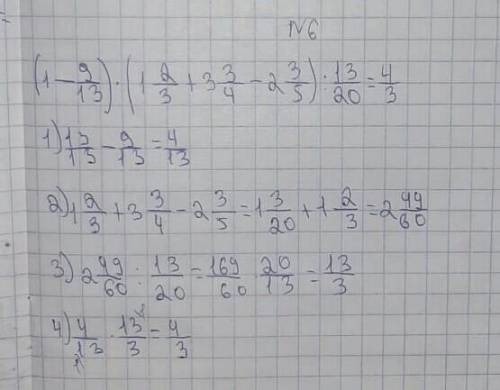 №6
(1 - 9/13) · (1 2/3 + 3 3/4 - 2 3/5) : 13/20 = 4/3
1) 13/13 - 9/13 = 4/13
2) 1 2/3 + 3 3/4 - 2 3/5 = 1 3/20 + 1 2/3 = 2 49/60
3) 2 49/60 : 13/20 = 169/60 · 20/13 = 13/3
4) 4/13 · 13/3 = 4/3